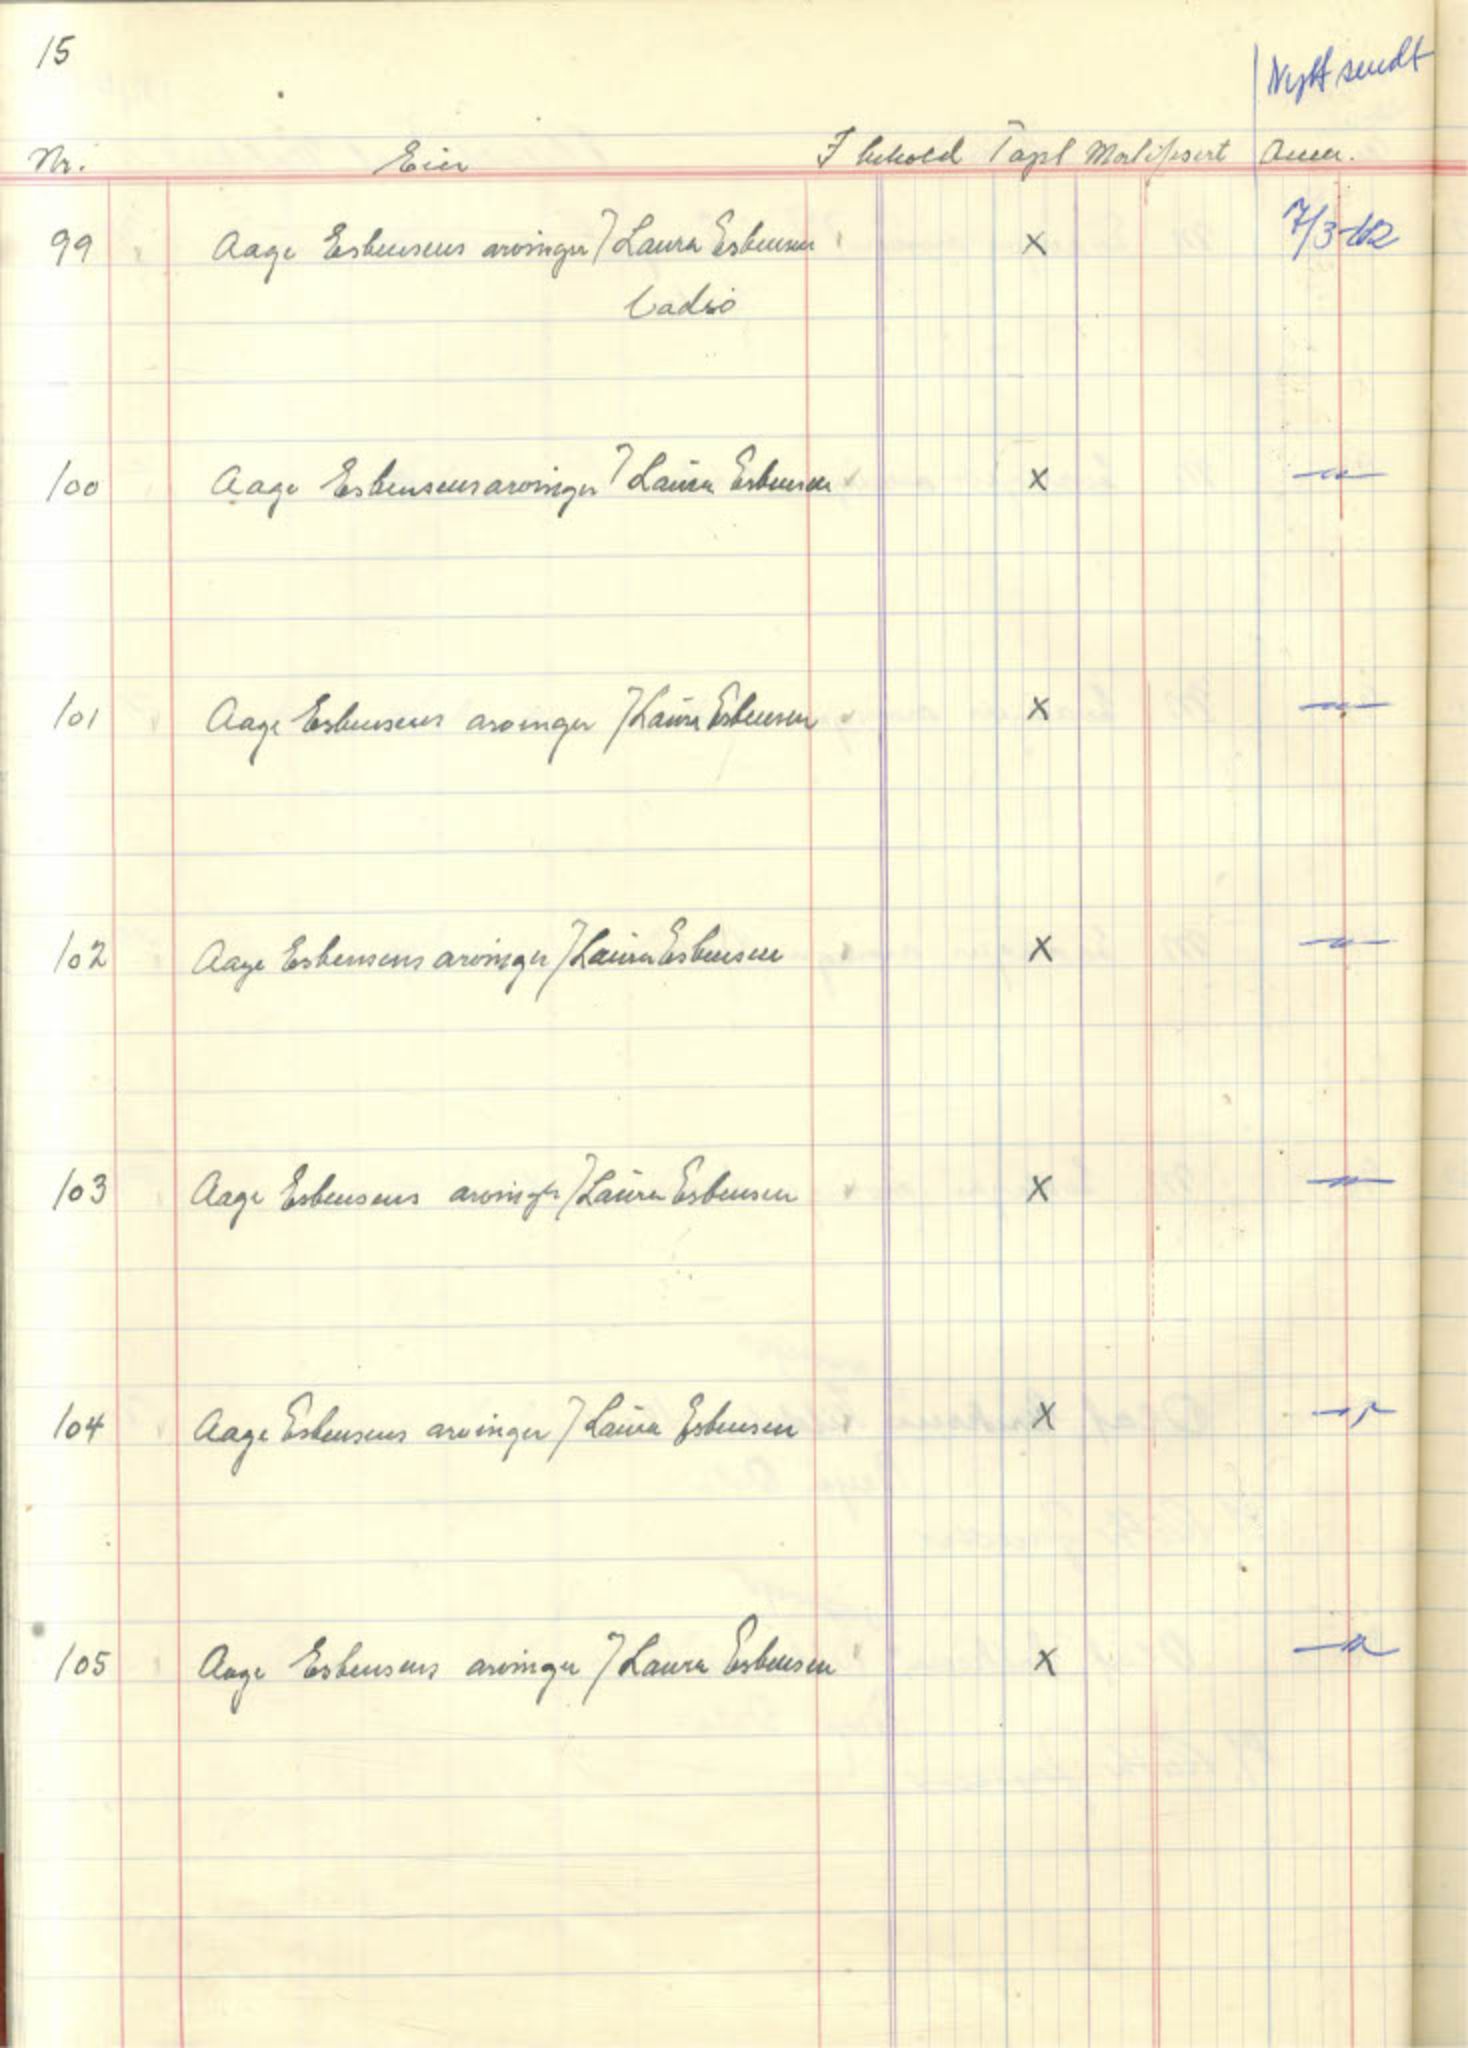 15
Nytt sendt
Nr. Eier I behold Tapt Mortifisert Anm.
99 Aage Esbensens arvinger / Laura Esbensen x 7/3-62
Vadsø
100 Aage Esbensens arvinger / Laura Esbensen x —"—
101 Aage Esbensens arvinger / Laura Esbensen x —"—
102 Aage Esbensens arvinger / Laura Esbensen x —"—
103 Aage Esbensens arvinger / Laura Esbensen x —"—
104 Aage Esbensens arvinger / Laura Esbensen x —"—
105 Aage Esbensens arvinger / Laura Esbensen x —"—